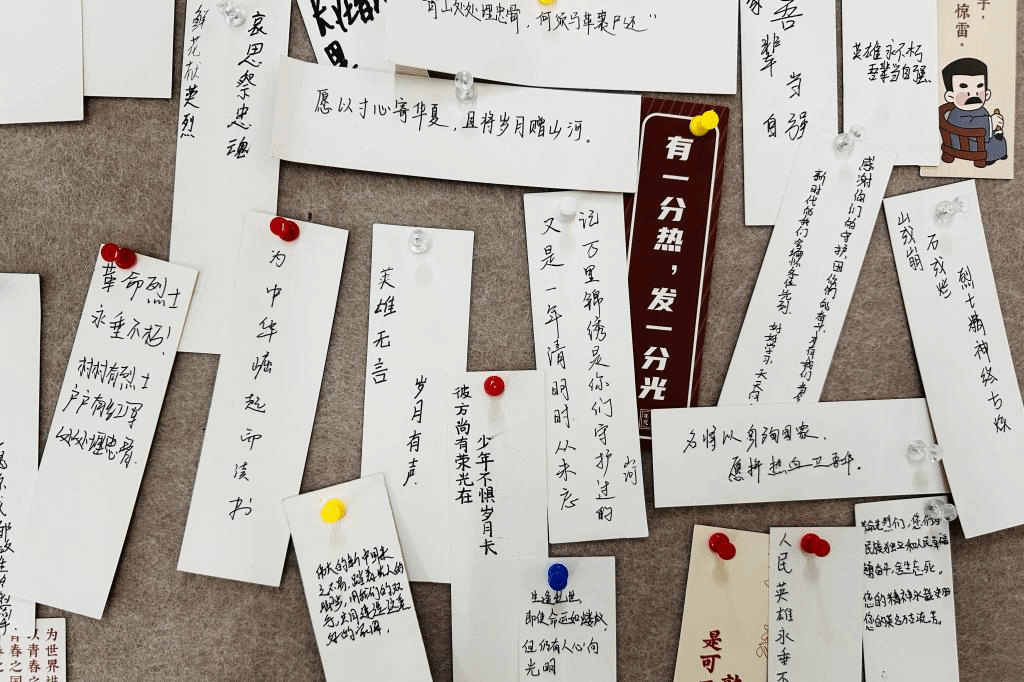 哀思祭忠魂
鲜花献英烈
青山处处埋忠骨，何须马革裹尸还"
愿以寸心寄华夏，且将岁月赠山河。
吾辈当自强
英雄永不朽
吾辈当自强
惊雷。
有一分热，发一分光
革命烈士
永垂不朽！
村村有烈士
户户有红军
处处埋忠骨
为中华崛起而读书
英雄无言
岁月有声
少年不惧岁月长
彼方尚有荣光在
记万里锦绣是你们守护过的
山河
又是一年清明时从未忘
感谢你们的守护，因你们的奋斗，才有我们
新时代的我们会缅怀
山或崩
石或烂
烈士精神终古焕
名将以身殉国家，
愿拼热血卫吾华。
伟大的新中国来
之不易，踏着前人的
脚步，用我们的双
手，共同建造这美
好的家园
生逢乱世，
即使命运如蝼蚁，
但仍有人心向
光明
是可
人民英雄永垂不
英烈们，您们为
民族独立和人民幸福
奋斗，舍生忘死。
您的精神永载史册
您的英名万古流芳。
为世界进
以青春之
青春之国